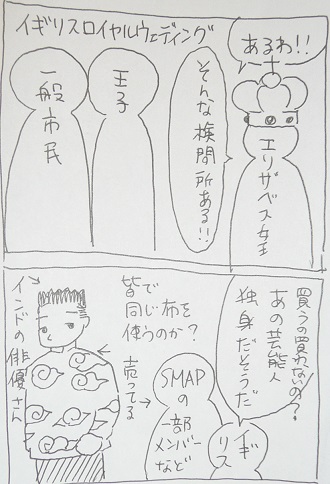 イギリスロイヤルウェディング
あるわ!!
エリザベス女王
そんな検問所ある!!
王子
一般市民
買うの買わないの?
あの芸能人
独身だそうだ
イギリス
SMAPの
一部
メンバー
など
売ってる
皆で
同じ布を
使うのか?
インドの俳優さん